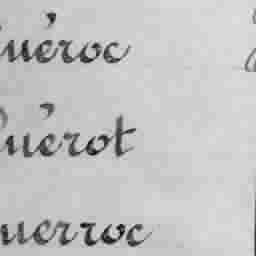 uéroc
uérot
uerroc